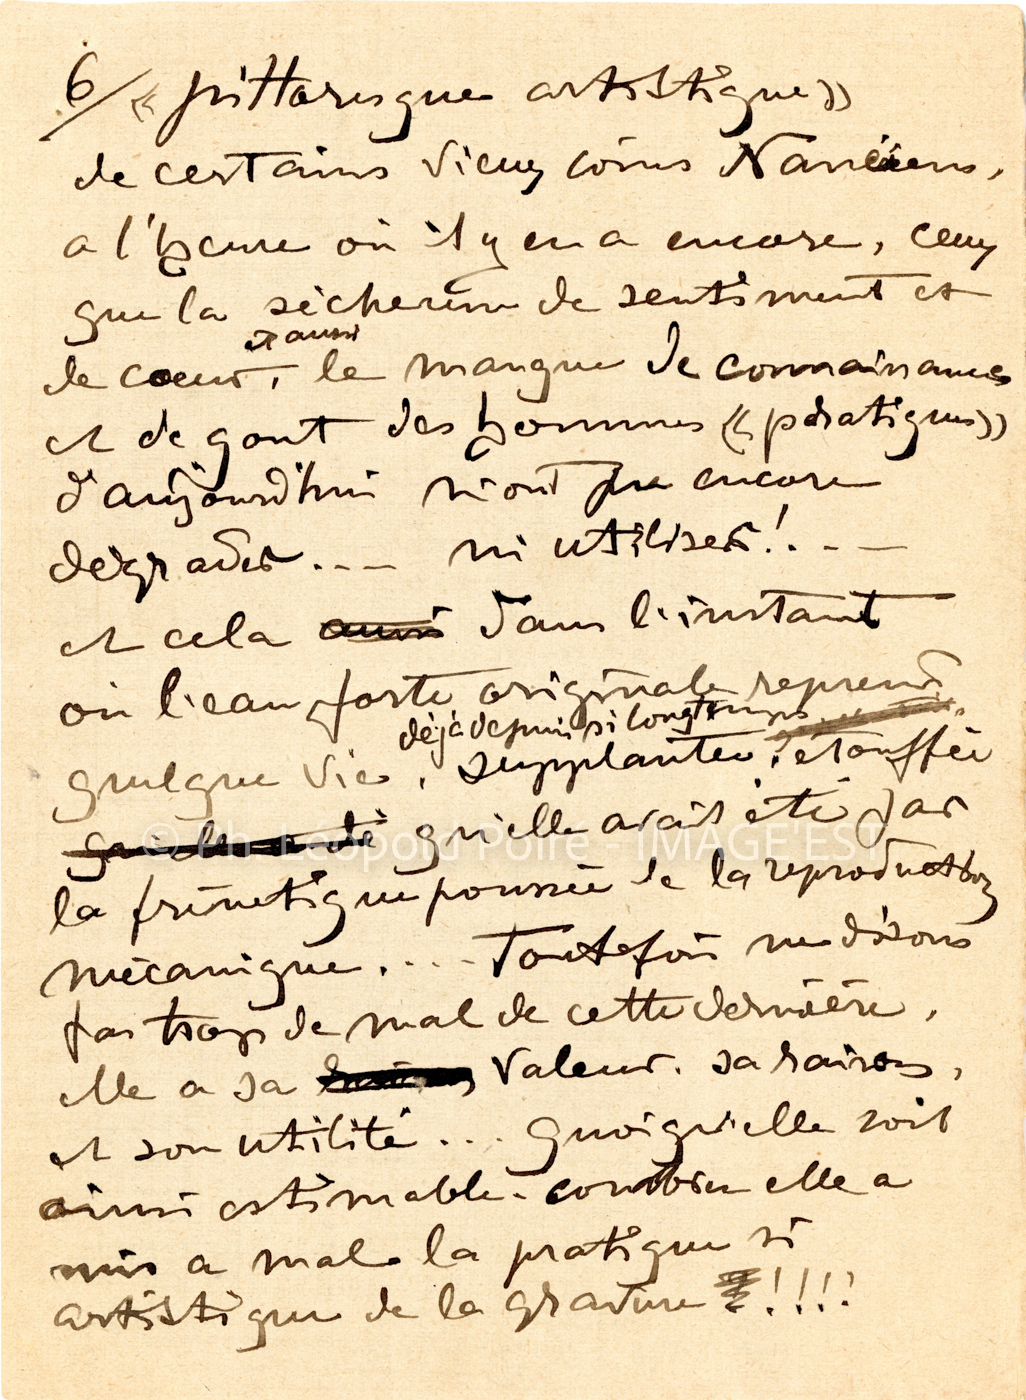 6/ « pittoresque artistique »
de certains vieux coins Nancéiens,
a l'heure où il y en a encore, ceux
que la sécheresse de sentiment et
et aussi
de cœur, le manque de connaissances
et de gout des hommes « pratiques »
d'aujourd'hui n'ont pas encore
dégradés ... ni utilisés ! . - -
et cela aussi dans l'instant
où l'eau forte originale reprend
déjà depuis si longtemps
quelque vie, supplantée, étouffée
qu'elle avait été par
la frénétique poussée de la reproduction
mécanique. ... Toutefois ne disons
pas trop de mal de cette dernière,
elle a sa valeur. sa raison,
et son utilité ... quoiqu'elle soit
ainsi estimable. combien elle a
mis a mal la pratique si
artistique de la gravure !!!!
© Ph. Léopold Poiré - IMAGE'EST